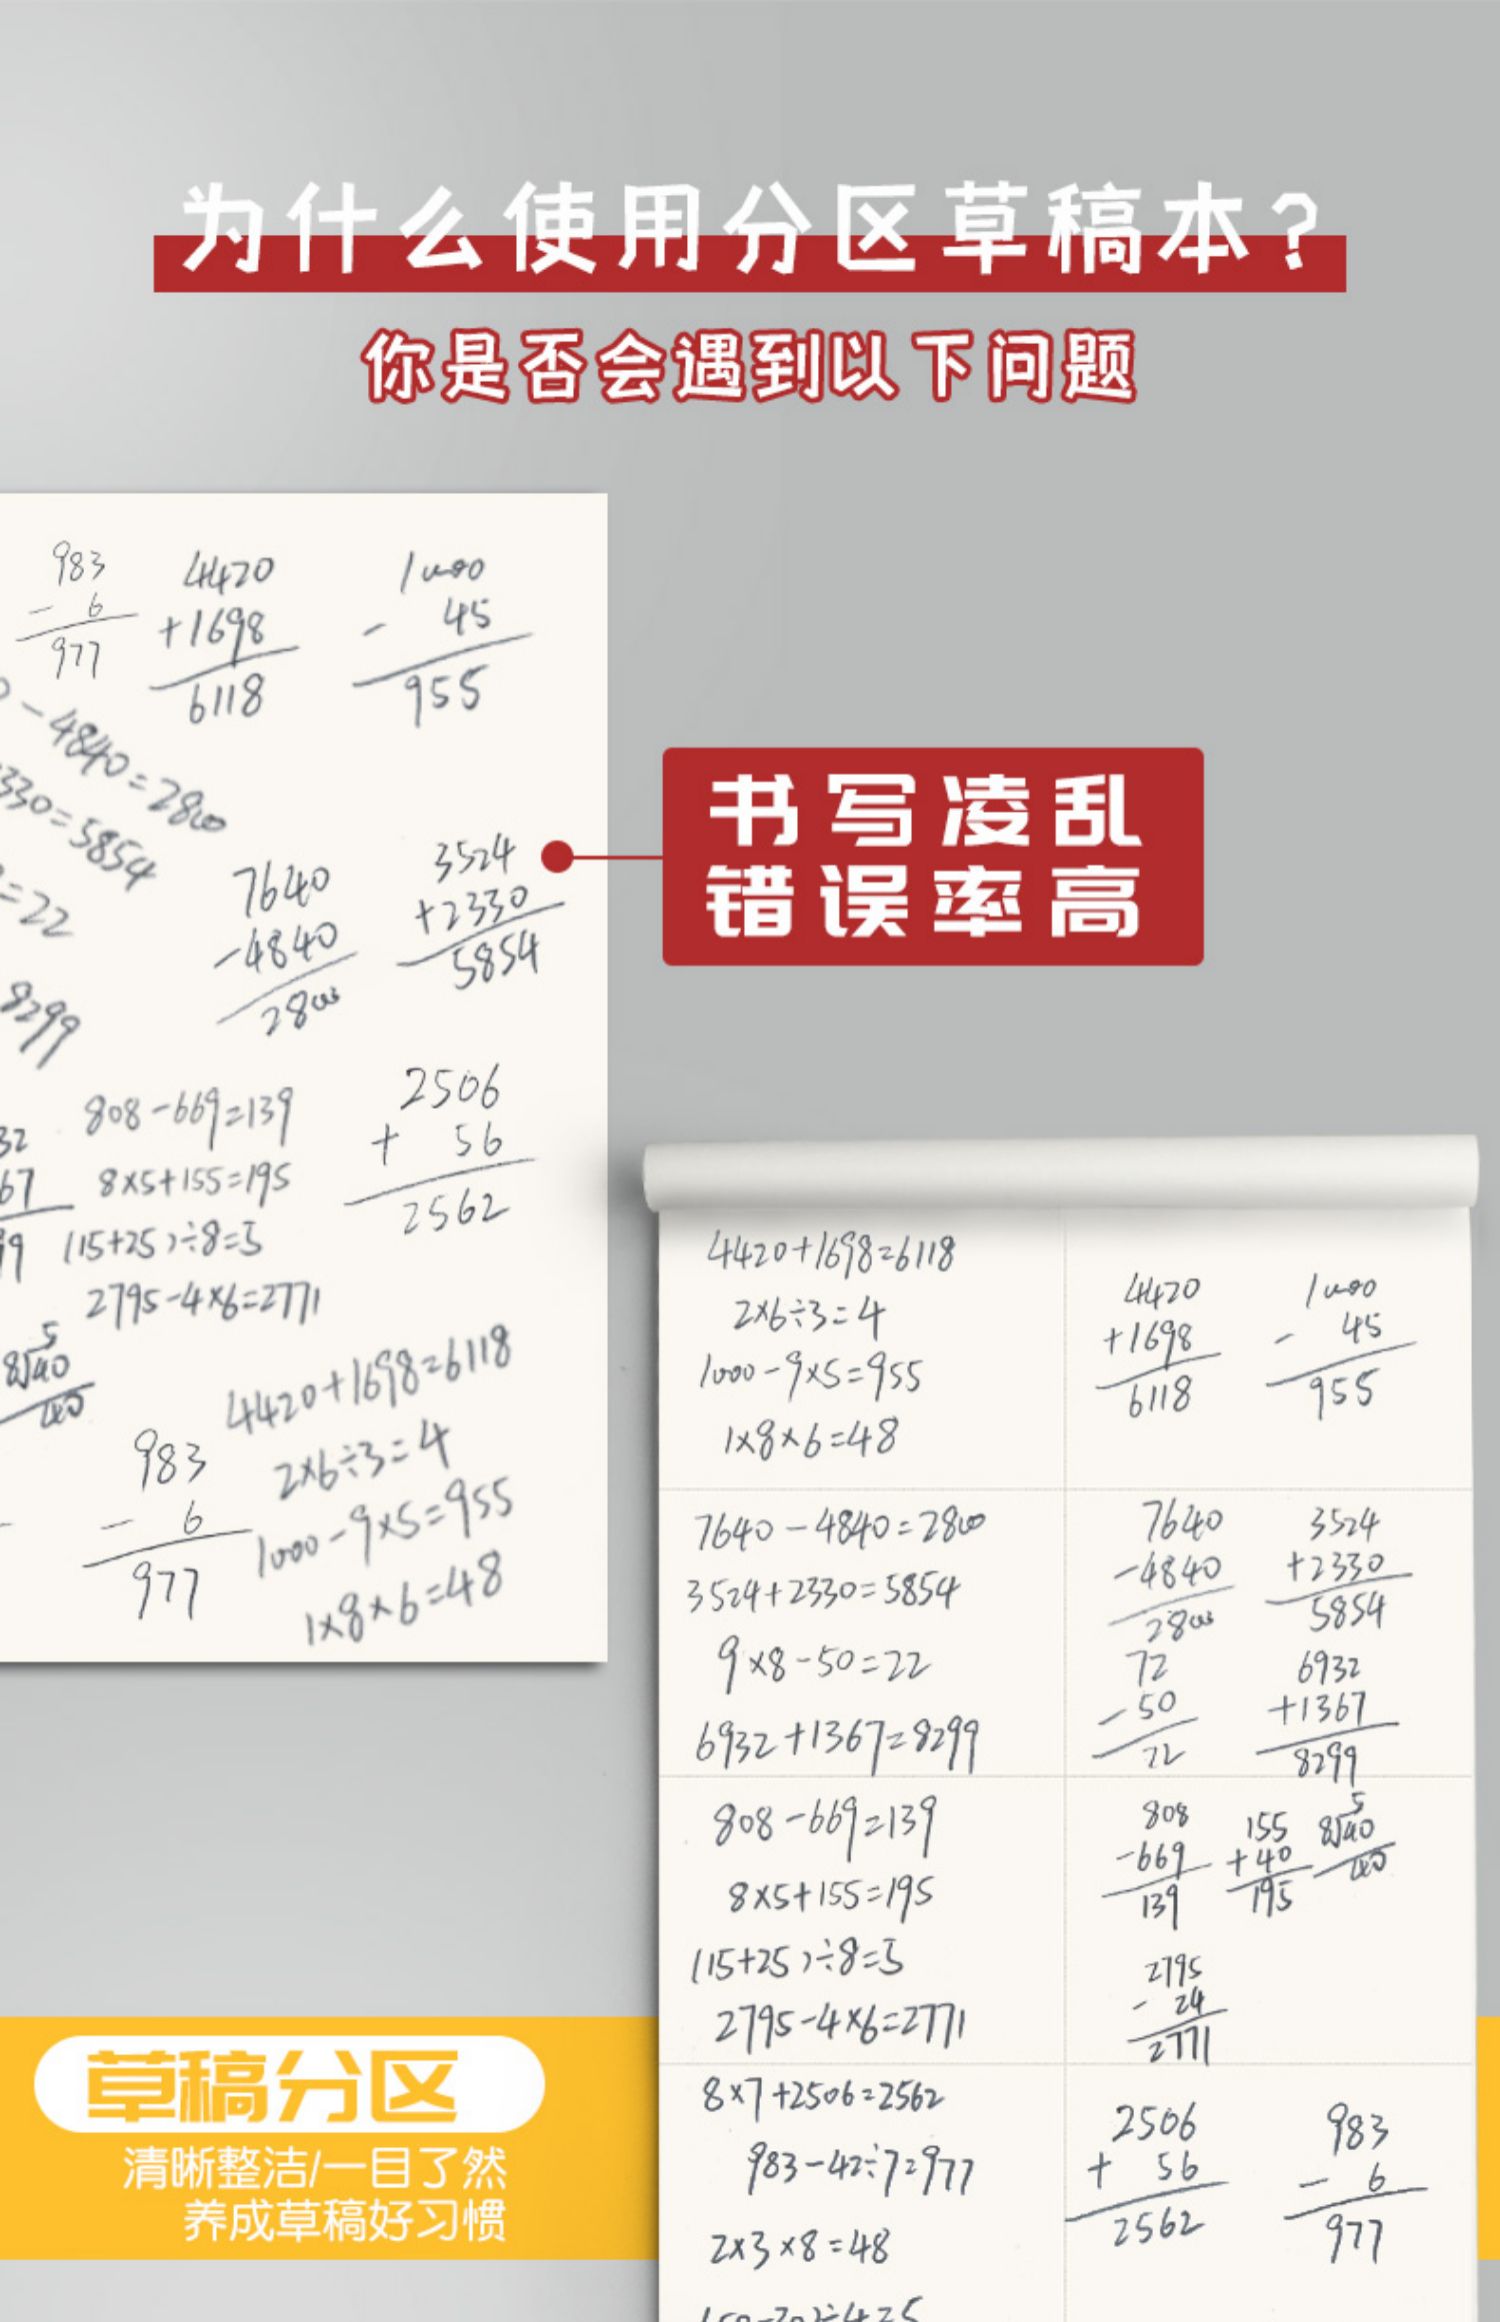 为什么使用分区草稿本?
你是否会遇到以下问题
983
- 6
977
4420
+1698
6118
1000
- 45
955
-4840=2800
330=5854
=22
8299
7640
-4840
2800
3524
+2330
5854
书写凌乱
错误率高
32
67
808-669=139
8×5+155=195
(15+25)÷8=5
2795-4×6=2771
2506
+ 56
2562
5
8√40
40
983
- 6
977
4420+1698=6118
2×6÷3=4
1000-9×5=955
1×8×6=48
4420+1698=6118
2×6÷3=4
1000-9×5=955
1×8×6=48
4420
+1698
6118
1000
- 45
955
7640-4840=2800
3524+2330=5854
9×8-50=22
6932+1367=8299
7640
-4840
2800
3524
+2330
5854
72
-50
22
6932
+1367
8299
808-669=139
8×5+155=195
(15+25)÷8=5
2795-4×6=2771
808
-669
139
155
+40
195
5
8√40
40
2795
- 24
2771
8×7+2506=2562
983-42÷7=977
2×3×8=48
2506
+ 56
2562
983
- 6
977
草稿分区
清晰整洁/一目了然
养成草稿好习惯